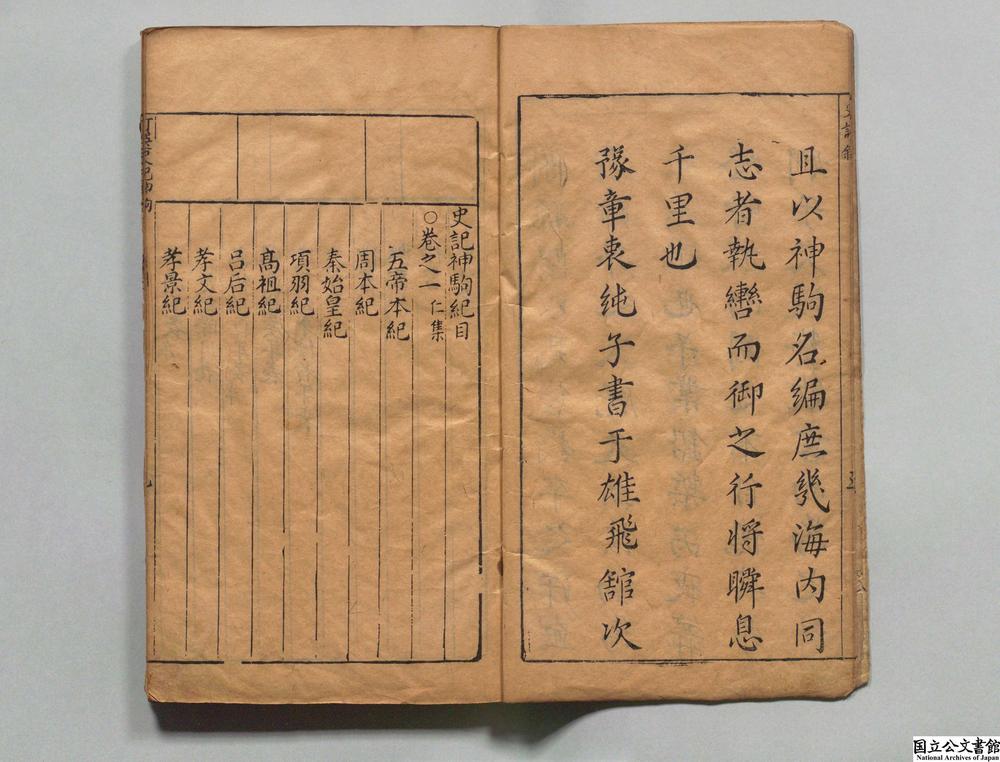 且以神駒名編庶幾海内同
志者執轡而御之行将瞬息
千里也
豫章衷純子書于雄飛舘次
史記神駒紀目
○卷之一 仁集
五帝本紀
周本紀
秦始皇紀
項羽紀
髙祖紀
吕后紀
孝文紀
孝景紀
国立公文書館
National Archives of Japan